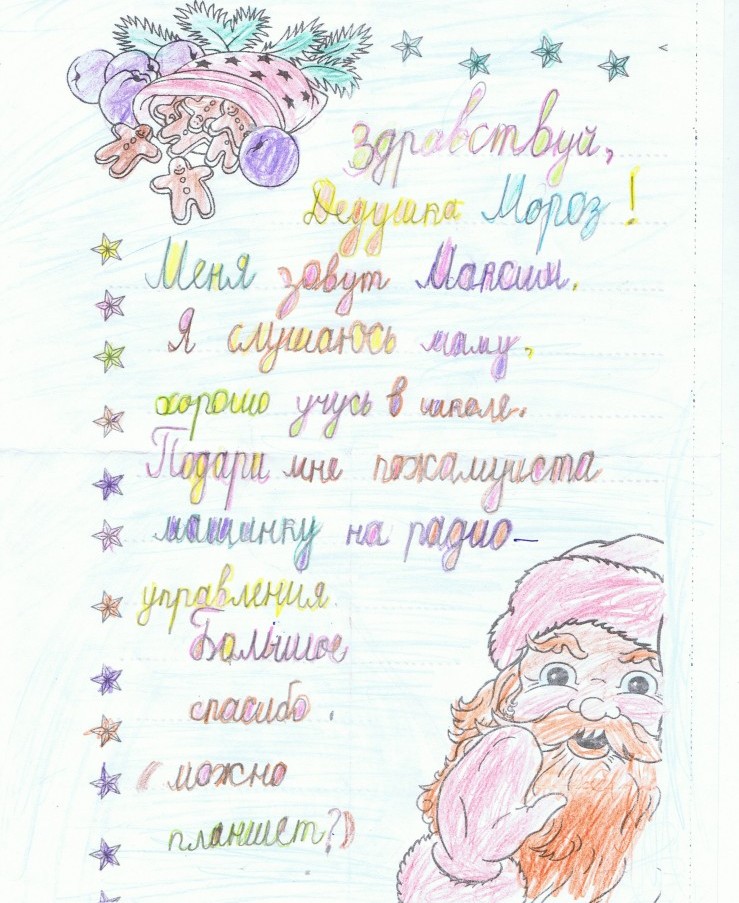 Здравствуй,
Дедушка Мороз!
Меня зовут Максим.
Я слушаюсь маму,
хорошо учусь в школе.
Подари мне пожамуиста
машинку на радио-
управления
Большое
спасибо.
(можно
планшет?)